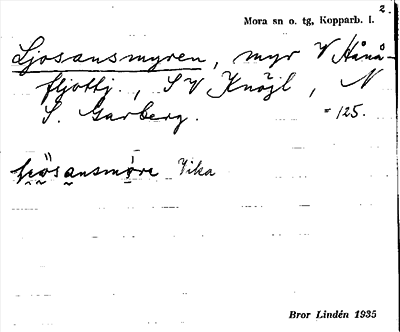 2.
Mora sn o. tg, Kopparb. l.
Ljosansmyren, myr V Hånå-
fljottj., SV Knöjl, N
S. Garberg. - 125.
Vika
Bror Lindén 1935